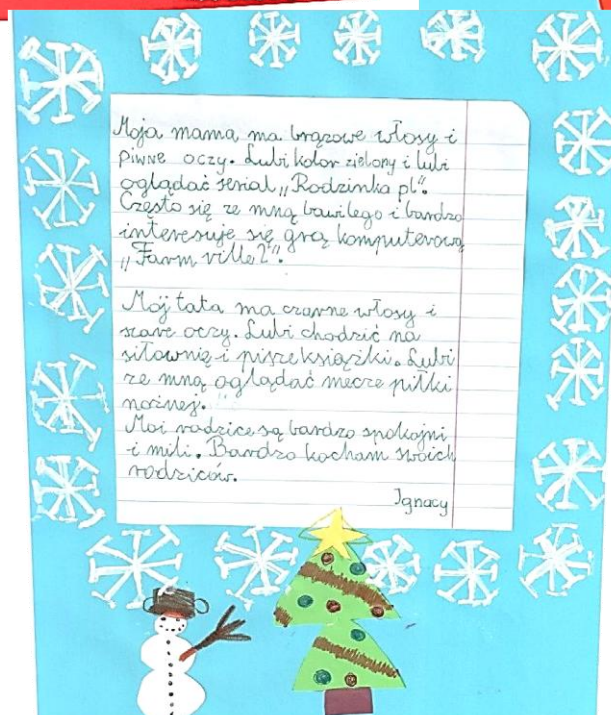 Moja mama ma brązowe włosy i
piwne oczy. Lubi kolor zielony i lubi
oglądać serial „Rodzinka pl".
Często się ze mną bawi lego i bardzo
interesuje się grą komputerową
„Farm ville 2".
Mój tata ma czarne włosy i
szare oczy. Lubi chodzić na
siłownię i pisze książki. Lubi
ze mną oglądać mecze piłki
nożnej.
Moi rodzice są bardzo spokojni
i mili. Bardzo kocham swoich
rodziców.
Ignacy